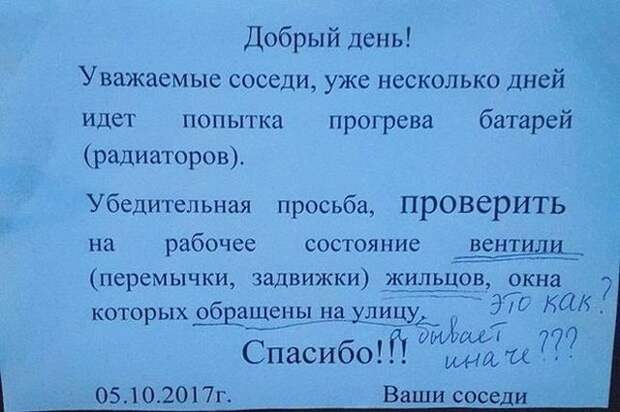 Добрый день!
Уважаемые соседи, уже несколько дней
идет попытка прогрева батарей
(радиаторов).
Убедительная просьба, проверить
на рабочее состояние вентили
(перемычки, задвижки) жильцов, окна
которых обращены на улицу. это как?
а бывает
иначе???
Спасибо!!!
05.10.2017г. Ваши соседи